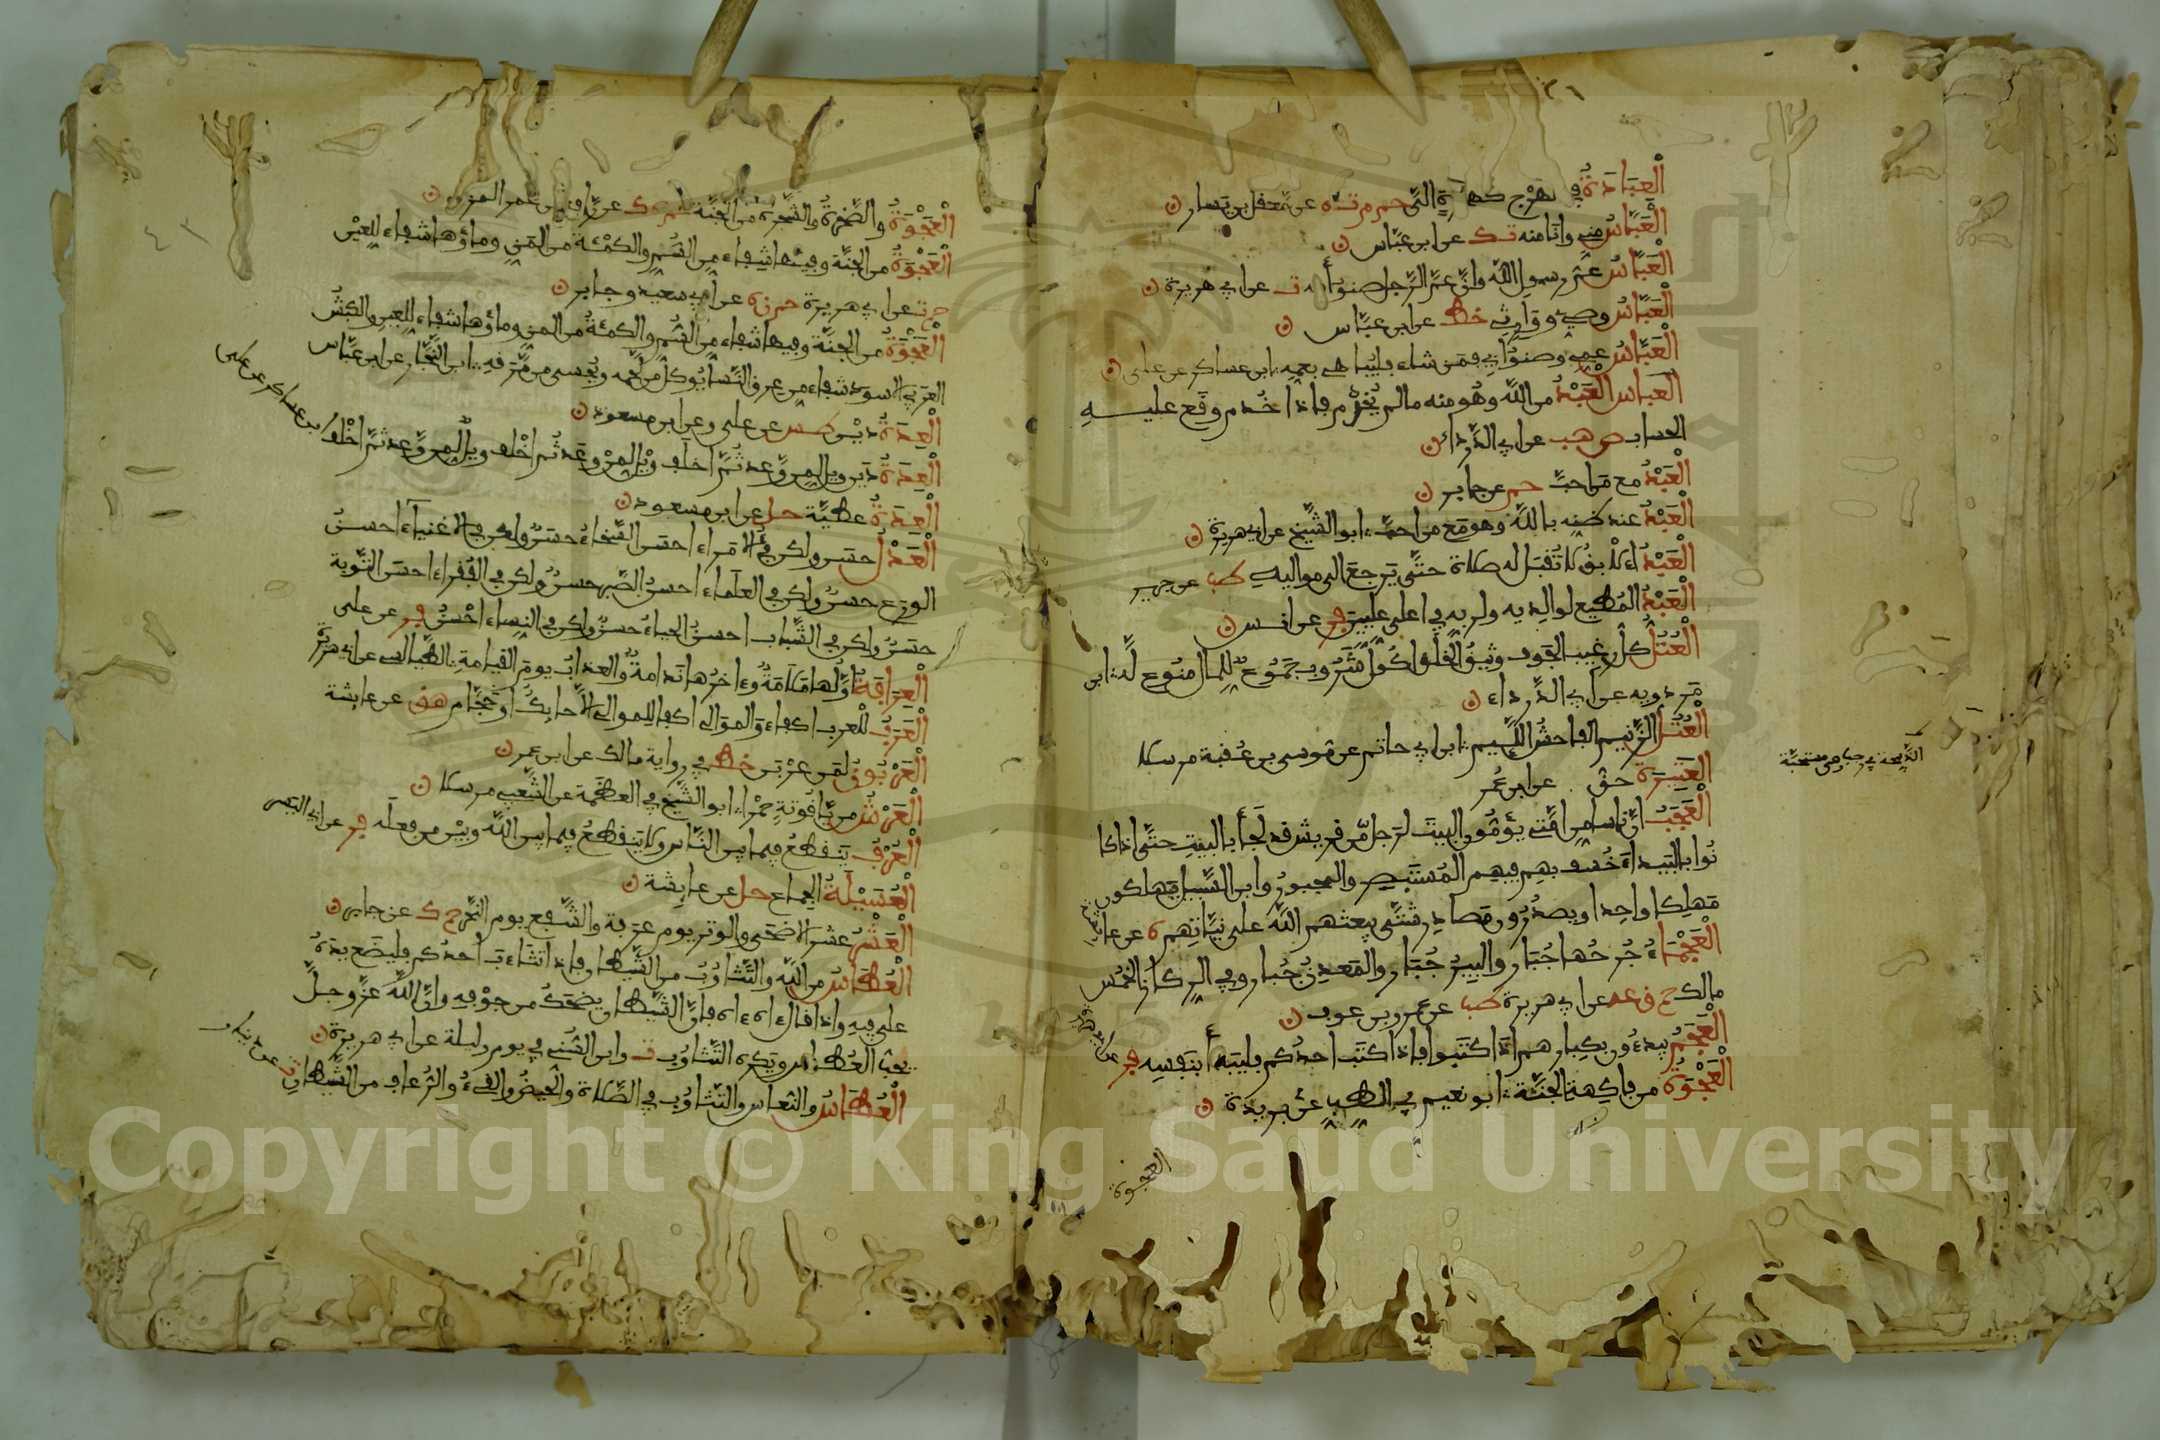 العِبَادَةُ في الهَرْج كهجرةٍ إليَّ حم م ت ه عن معقل بن يسار
العَبَّاسُ مني وأنا منه ت ك عن ابن عبّاس
العَبَّاسُ عَمّ رسولِ اللَّه وإنَّ عمَّ الرَّجل صنو أبيه ت عن أبي هريرة
العَبَّاسُ وصيّ ووارثي خط عن ابن عبّاس
العَبَّاسُ عمي وصنو أبي فمن شاء فليُباهي بعمه ابن عساكر عن علي
العَبْدُ من اللَّه وهُو منه ما لم يُخْدَم فإذا خُدم وقَع عليه
الحساب ص هب عن أبي الدَّرداء
العَبْدُ مع من أحبّ حم عن جابر
العَبْدُ عند ظنه باللَّه وهو مَع من أحبّ أبو الشّيخ عن أبي هريرة
العَبْدُ الآبقُ لا تُقبَل له صلاة حتّى يَرجعَ إلى مواليه طب عن جرير
العَبْدُ المُطيع لوالديه ولربه في أعلى عليين فر عن أنس
العُتُلُّ كلّ رغيب الجَوف وثيقُ الخَلق أكُولٌ شَرُوب جَمُوعٌ للمال منُوع له ابن
مَردويه عن أبي الدّرداء
العُتُلّ الزّنيم الفاحش اللّئيم ابن أبي حاتم عن موسى بن عُقبة مرسلا
العَتِيرَة حقّ عن ابن عُمر
العَجَبُ أنَّ ناسا من أمّتي يؤمُّون البيتَ لرَجل من قريش قد لجَأ بالبيتِ حتَّى إذا كا
نُوا بالبَيداء خُسف بهِم فيهم المُستَبصر والمجبورُ وابن السَّبيل يَهلكون
مَهلِكا واحِدا ويصدُرُون مَصادر شتَّى يبعثهم اللَّه على نيَّاتهم م عن عائشة
العَجْمَاءُ جُرحُها جُبَار والبِيرُ جُبَار والمَعدنُ جُبار وفي الرِكاز الخُمُس
مالك حم ق عه عن أبي هريرة طب عن عمرو بن عوف
العَجَمُ يبدءُون بكبارهم إذا كتَبوا فإذا كتَب أحدُكم فليبدأ بنَفسِه فر عن أبي هريرة
العَجْوَةُ من فاكِهة الجَنَّة أبو نعيم في الطب عن بريدة
العجوة
العَجْوَةُ والصَّخرَةُ والشَّجرة من الجَنَّة حم ه ك عن رافع بن عمرو المزني
العَجْوَةُ من الجنَّة وفيها شِفاء مِن السُّم والكمْئَة من المَن وماؤها شفاء للعَيْن
حم ت ه عن أبي هريرة حم ن ه عن أبي سعيد وجابر
العَجْوَةُ من الجنَّة وفيها شفاء من السُّم والكمْئةُ من المن وماؤها شفاء للعين والكبش
العَرَبي الأسود شفاء من عِرق النَّسا يُوكل من لحمه ويُحسى من مَّرَقه ابن النَّجّار عن ابن عبَّاس
العِدَةُ ديْن طس عن علي وعن ابن مسعود
العِدَةُ دَين ويل لمن وَّعد ثُمّ أخلف ويْل لمنْ وعَد ثُم أخْلف ويل لمن وَّعد ثمّ أخْلف ابن عساكر عن علي
العِدَةُ عطيَّة حل عن ابن مسعود
العَدْلُ حسن ولكن في الأمَراء أحسَن السَّخاءُ حسَنٌ ولكن في الأغنياء أحسنُ
الورَع حسنٌ ولكن في العلَماء أحسنُ الصَّبر حسنٌ ولكن في الفُقراء أحسَن التّوبة
حسَنٌ ولكن في الشّباب أحسنُ الحياءُ حسنٌ ولكن في النِساء أحْسنُ فر عن علي
العِرَافَةُ أوَّلها مَلامَةٌ وءاخرُها نَدامةٌ والعذابُ يومَ القيامة الطّيالسي عن أبي هُريرة
العَرَبُ للعرب أكفاء والموَالي أكفاء للموالي إلاّ حائِكٌ أو حَجّام هق عن عائشة
العَرْبُونُ لمَن عرْبَن خط في رواية مالك عن ابن عمر
العَرْشُ من يّاقُوتةٍ حَمْراء أبو الشّيخ في العظمَة عن الشَّعبي مرسلا
العُرْفُ يَنقطعُ فيما بين النَّاس ولا يَنقطعُ فيما بين اللَّه وبيْن من فعلَه فر عن أبي اليسر
العُسَيْلَةُ الجماع حل عن عائشة
العَشْرُ عشر الأضحَى والوتر يوم عرَفة والشَّفع يوم النَّحر حم ك عن جابر
العُطَاسُ من اللَّه والتَّثاؤبُ من الشَّيطان فإذا تثاءَبَ أحدُكم فليضَع يدَهُ
على فيه وإذا قال ءاه ءاه فإنَّ الشَّيطان يضحَكُ من جوْفِه وإنَّ اللَّه عزَّ وجلَّ
يحبّ العُطاس ويَكره التَّثاوُب ت وابن السُّنّي في يوم وليلة عن أبي هريرة
العُطَاسُ والنُعاس والتَّثاوُب في الصَّلاة والحَيضُ والقَيءُ والرُّعاف من الشَّيطان ت عن دينار
Copyright © King Saud University